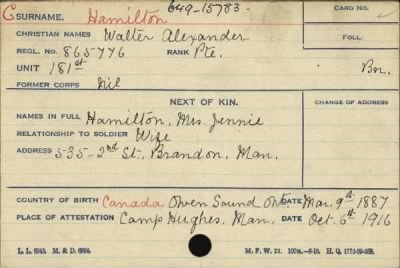 C 649-15783- CARD NO.
SURNAME. Hamilton
CHRISTIAN NAMES Walter Alexander FOLL.
REGL. NO. 865776 RANK Pte.
UNIT 181st Bn.
FORMER CORPS Nil
NEXT OF KIN. CHANGE OF ADDRESS
NAMES IN FULL Hamilton, Mrs Jennie
RELATIONSHIP TO SOLDIER Wife
ADDRESS 535-2nd St., Brandon, Man.
COUNTRY OF BIRTH Canada Owen Sound Ont DATE Mar. 9th 1887
PLACE OF ATTESTATION Camp Hughes, Man. DATE Oct. 6th 1916
L. L. M. & D. M. F. W. 23. H. Q. 1772-39-339.